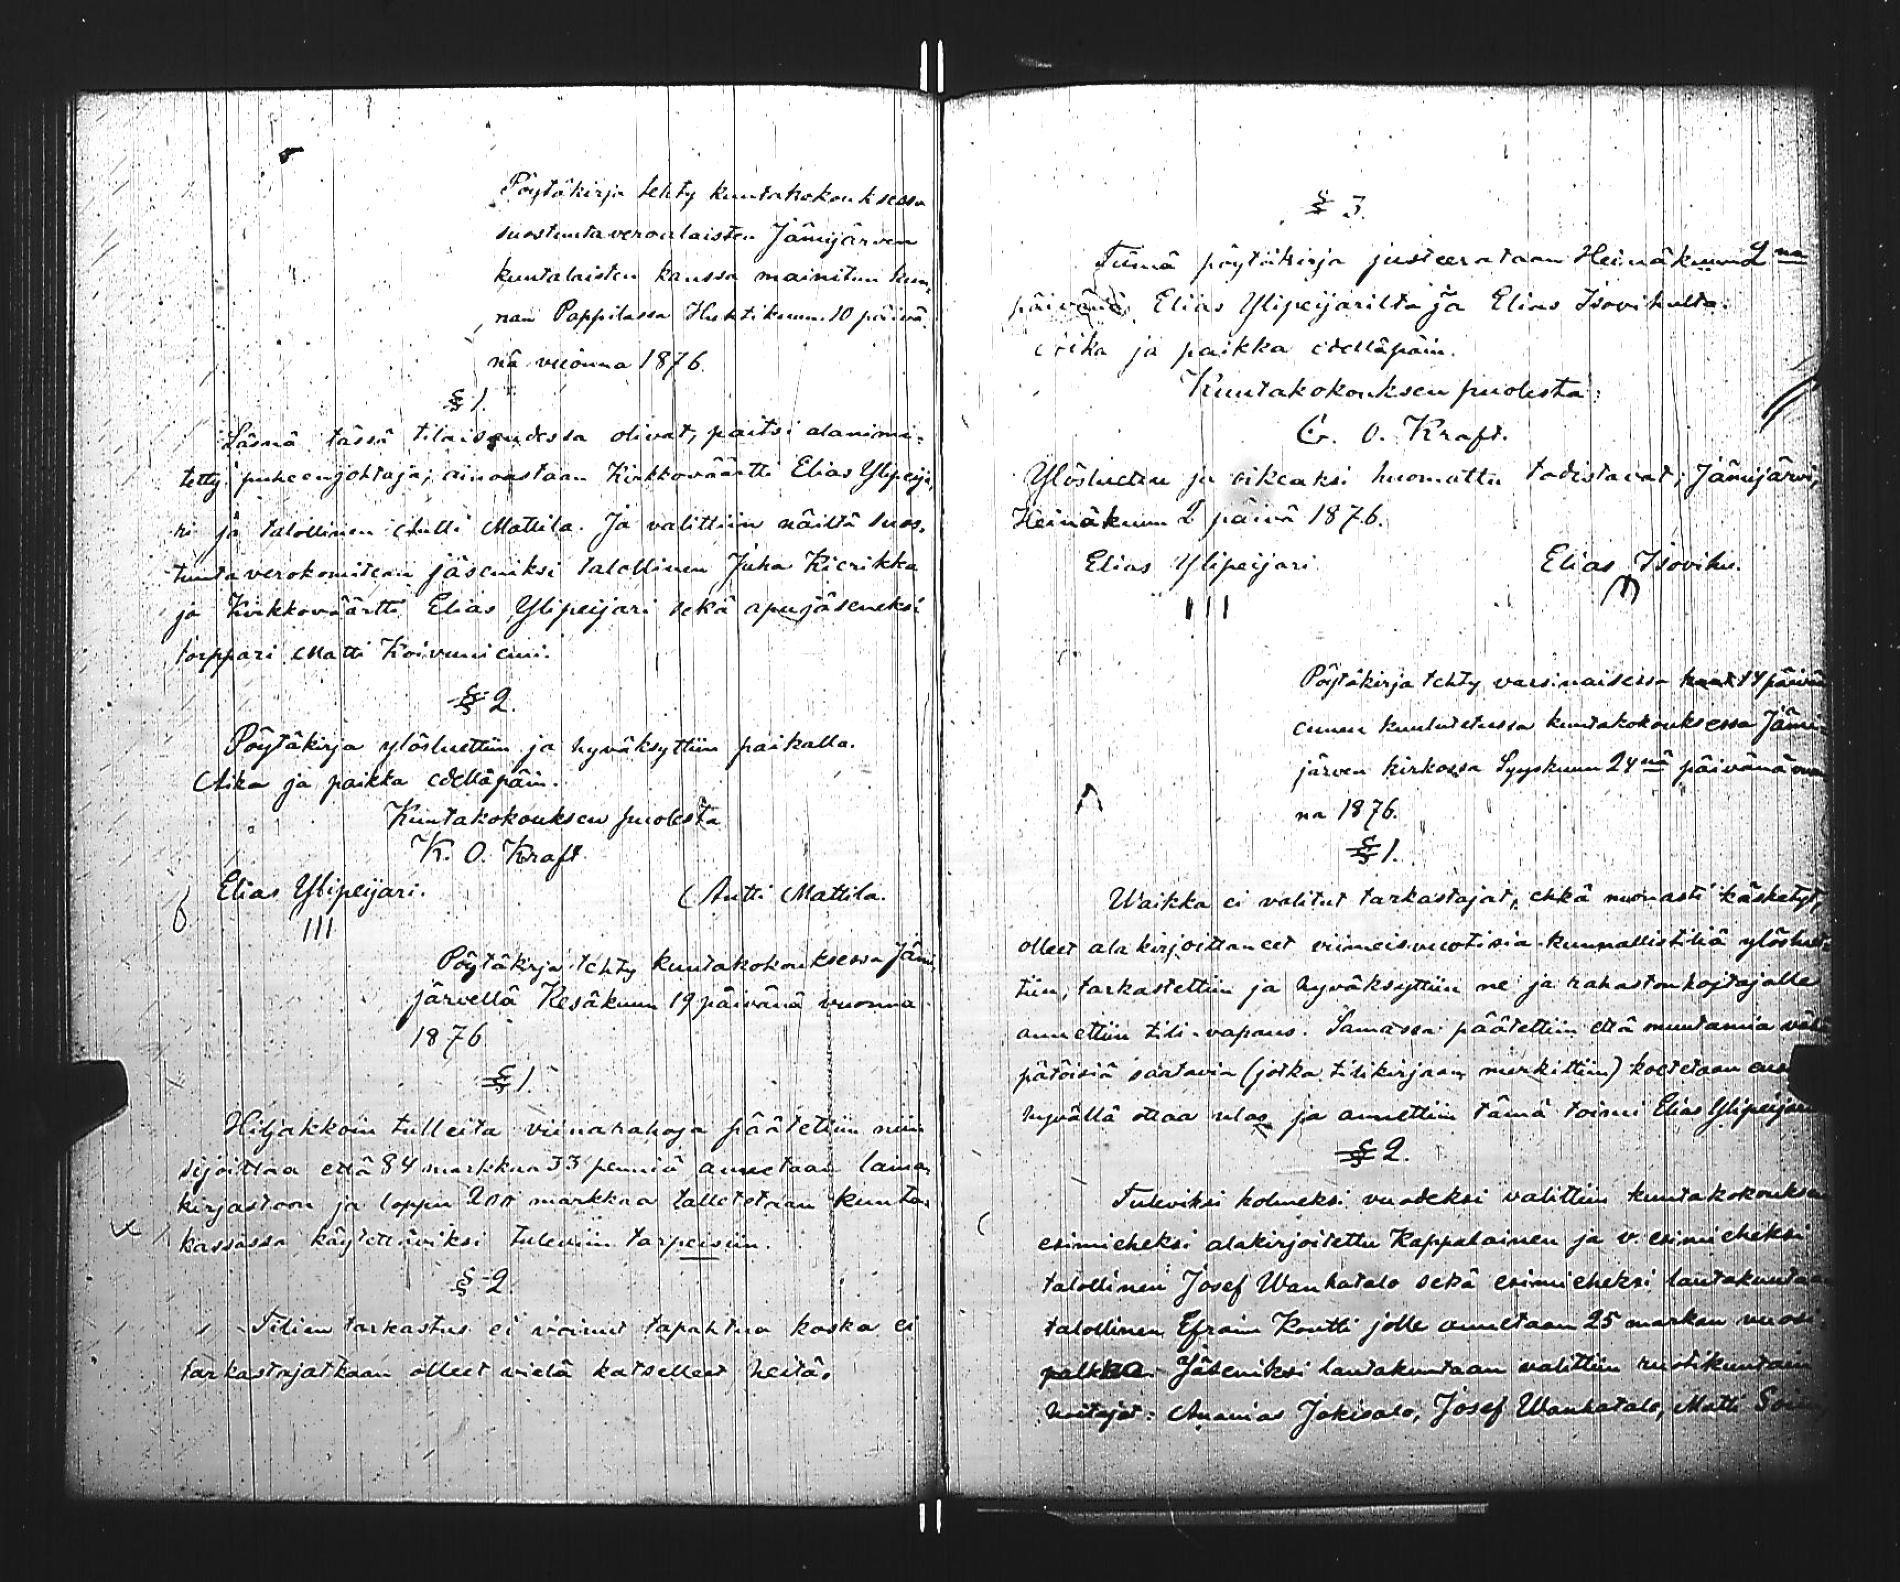 Pöytäkirja tehty kuntakokouksessa
suostuntaveroalaisten Jämijärven
kuntalaisten kanssa mainitun kun,
nan Pappilassa Huhtikuun 10 päivä,
nä vuonna 1876.
§ 1.
Läsnä tässä tilaisuudessa olivat, paitsi alanimi,
tetty puheenjohtaja, ainoastaan Kirkkoväärtti Elias Ylipeija,
ri ja talollinen Antti Mattila. Ja valittiin näiltä suos,
tuntaverokomitean jäseniksi talollinen Juha Kierikka
ja Kirkkoväärtti Elias Ylipeijari sekä apujäseneksi
torppari Matti Koivuniemi.
§ 2.
Pöytäkirja ylösluettiin ja hyväksyttiin paikalla.
Aika ja paikka edelläpäin.
Kuntakokouksen puolesta
K. O. Kraft.
Elias Ylipeijari. Antti Mattila.
III
Pöytäkirja tehty kuntakokouksessa Jämi,
järvellä Kesäkuun 19 päivänä vuonna
1876
§ 1.
Hiljakkoin tulleita viinarahoja päätettiin niin
sijoittaa että 84 markkaa 33 penniä annetaan laina,
kirjastoon ja loppu 200 markkaa talletetaan kunta,
kassassa käytettäviksi tuleviin tarpeisiin.
§ 2.
Tilien tarkastus ei voinut tapahtua koska ei
tarkastajatkaan olleet vielä katselleet heitä.
§ 3.
Tämä pöytäkirja justeerataan Heinäkuun 2 na
päivänä Elias Ylipeijarilta ja Elias Isovihulta.
Aika ja paikka edelläpäin.
Kuntakokouksen puolesta:
G. O. Kraft.
Ylösluetun ja oikeaksi huomattu todistavat; Jämijärvi,
Heinäkuun 2 päivä 1876.
Elias Ylipeijari. Elias Isovihu.
III
Pöytäkirja tehty varsinaisessa 14 päivää
ennen kuulutetussa kuntakokouksessa Jämi,
järven kirkossa Syyskuun 24 nä päivänä vuon
na 1876.
§ 1.
Waikka ei valitut tarkastajat, ehkä monasti käsketyt,
olleet alakirjoittaneet viimeisvuotisia kunnallistiliä ylösluet,
tiin, tarkastettiin ja hyväksyttiin ne ja rahastonhoitajalle
annettiin tili-vapaus. Samassa päätettiin että muutamia vähä
pätöisiä saatavia (jotka tilikirjaan merkittiin) koetetaan ensi
hyvällä ottaa ulos ja annettiin tämä toimi Elias Ylipeijari
§ 2.
Tuleviksi kolmeksi vuodeksi valittiin kuntakokouksen
esimieheksi alakirjoitettu Kappalainen ja v. esimieheksi
talollinen Josef Wanhatalo sekä esimieheksi lautakuntaan
talollinen Efraim Kontti jolle annetaan 25 markan vuosi
palkka. Jäseniksi lautakuntaan valittiin ruotikuntain
hoitajat: Ananias Jokisalo, Josef Wanhatalo, Matti